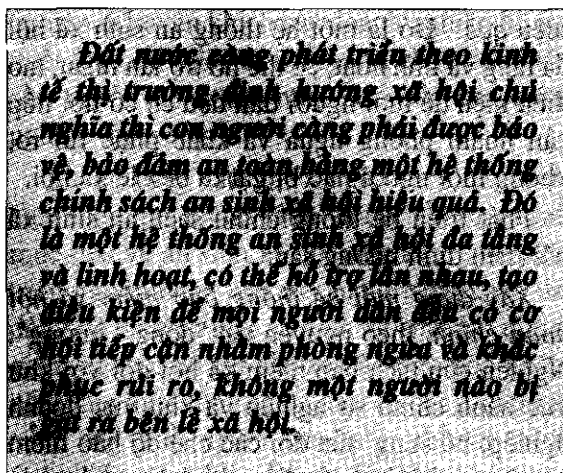 Đất nước càng phát triển theo kinh
tế thị trường định hướng xã hội chủ
nghĩa thì con người càng phải được bảo
vệ, bảo đảm an toàn bằng một hệ thống
chính sách an sinh xã hội hiệu quả. Đó
là một hệ thống an sinh xã hội đa tầng
và linh hoạt, có thể hỗ trợ lẫn nhau, tạo
điều kiện để mọi người dân đều có cơ
hội tiếp cận nhằm phòng ngừa và khắc
phục rủi ro, không một người nào bị
gạt ra bên lề xã hội.